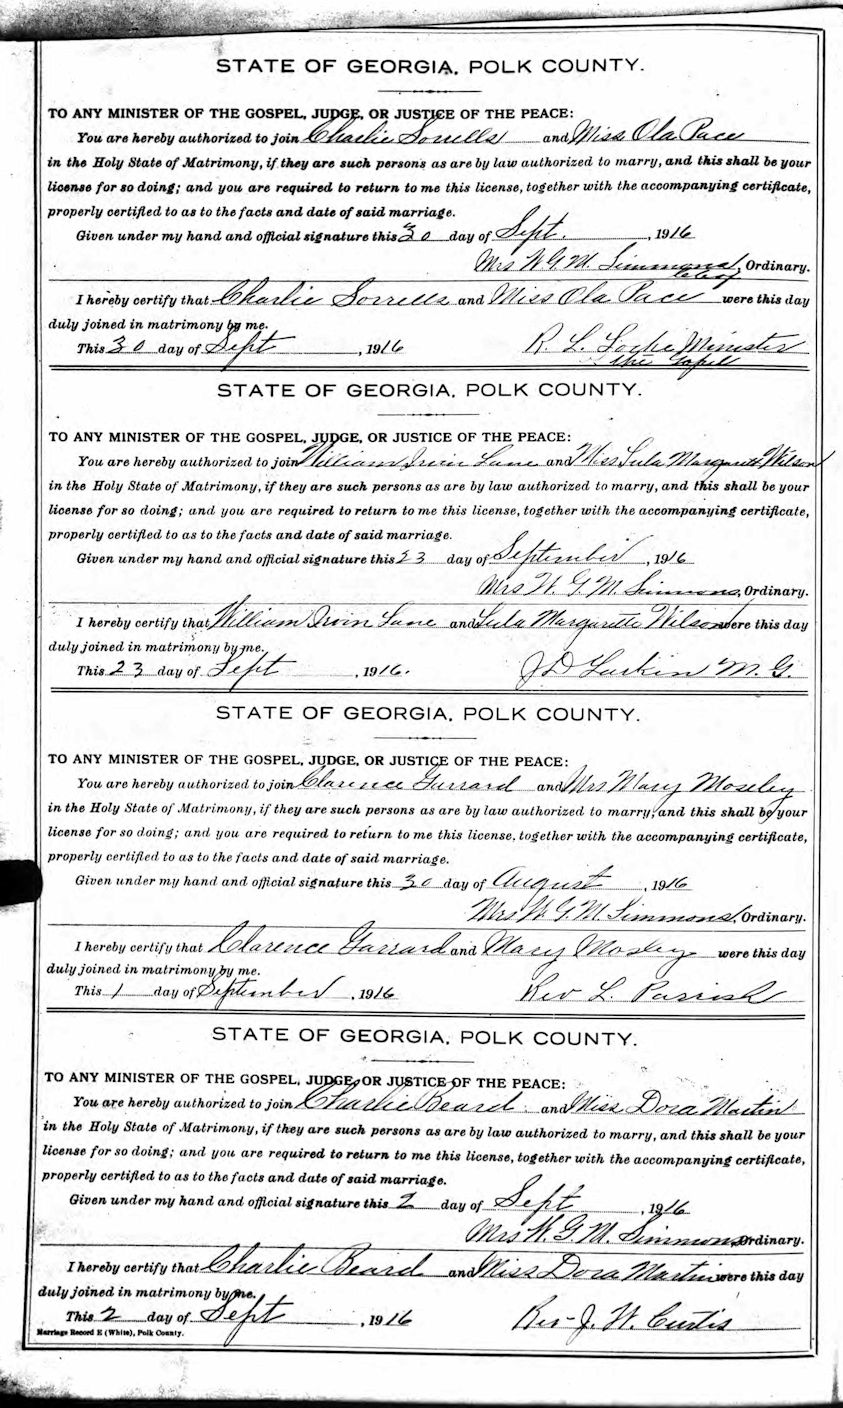 STATE OF GEORGIA, POLK COUNTY.
TO ANY MINISTER OF THE GOSPEL, JUDGE, OR JUSTICE OF THE PEACE:
You are hereby authorized to join Charlie Sorrells and Miss Ola Pace
in the Holy State of Matrimony, if they are such persons as are by law authorized to marry, and this shall be your
license for so doing; and you are required to return to me this license, together with the accompanying certificate,
properly certified to as to the facts and date of said marriage.
Given under my hand and official signature this 30 day of Sept. , 1916
Mrs W. G. M. Simmons, Ordinary.
I hereby certify that Charlie Sorrells and Miss Ola Pace were this day
duly joined in matrimony by me.
This 30 day of Sept , 1916 R. L. Minister
the Gospel
STATE OF GEORGIA, POLK COUNTY.
TO ANY MINISTER OF THE GOSPEL, JUDGE, OR JUSTICE OF THE PEACE:
You are hereby authorized to join William Irvin Lane and Miss Lula Margarett Wilson
in the Holy State of Matrimony, if they are such persons as are by law authorized to marry, and this shall be your
license for so doing; and you are required to return to me this license, together with the accompanying certificate,
properly certified to as to the facts and date of said marriage.
Given under my hand and official signature this 23 day of September , 1916
Mrs W. G. M. Simmons, Ordinary.
I hereby certify that William Irvin Lane and Lula Margarette Wilson were this day
duly joined in matrimony by me.
This 23 day of Sept , 1916. J D Larkin M. G.
STATE OF GEORGIA, POLK COUNTY.
TO ANY MINISTER OF THE GOSPEL, JUDGE, OR JUSTICE OF THE PEACE:
You are hereby authorized to join Clarence Garrard and Mrs Mary Moseley
in the Holy State of Matrimony, if they are such persons as are by law authorized to marry, and this shall be your
license for so doing; and you are required to return to me this license, together with the accompanying certificate,
properly certified to as to the facts and date of said marriage.
Given under my hand and official signature this 30 day of August , 1916
Mrs W. G. M. Simmons, Ordinary.
I hereby certify that Clarence Garrard and Mary Mosley were this day
duly joined in matrimony by me.
This 1 day of September , 1916 Rev L. Parrish
STATE OF GEORGIA, POLK COUNTY.
TO ANY MINISTER OF THE GOSPEL, JUDGE, OR JUSTICE OF THE PEACE:
You are hereby authorized to join Charlie Beard and Miss Dora Martin
in the Holy State of Matrimony, if they are such persons as are by law authorized to marry, and this shall be your
license for so doing; and you are required to return to me this license, together with the accompanying certificate,
properly certified to as to the facts and date of said marriage.
Given under my hand and official signature this 2 day of Sept , 1916
Mrs W. G. M. Simmons, Ordinary.
I hereby certify that Charlie Beard and Miss Dora Martin were this day
duly joined in matrimony by me.
This 2 day of Sept , 1916 Rev- J. W. Curtis
Marriage Record E (White), Polk County.